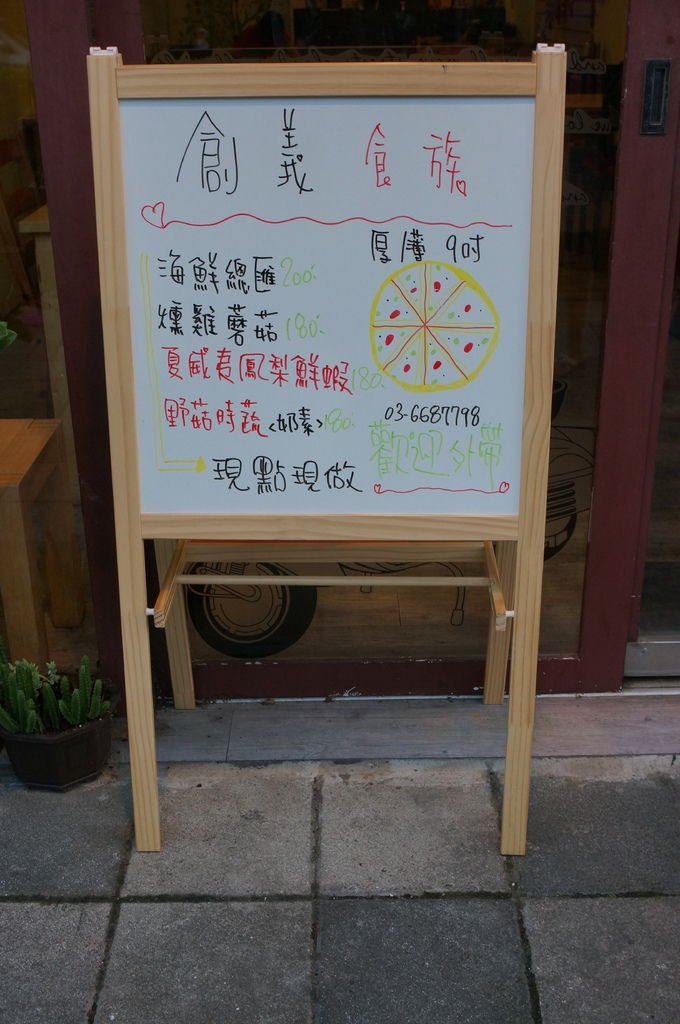 創義食族
厚薄 9吋
海鮮總匯 200.
燻雞蘑菇 180.
夏威夷鳳梨鮮蝦 180.
野菇時蔬<奶素> 180.
03-6687798
歡迎外帶
現點現做